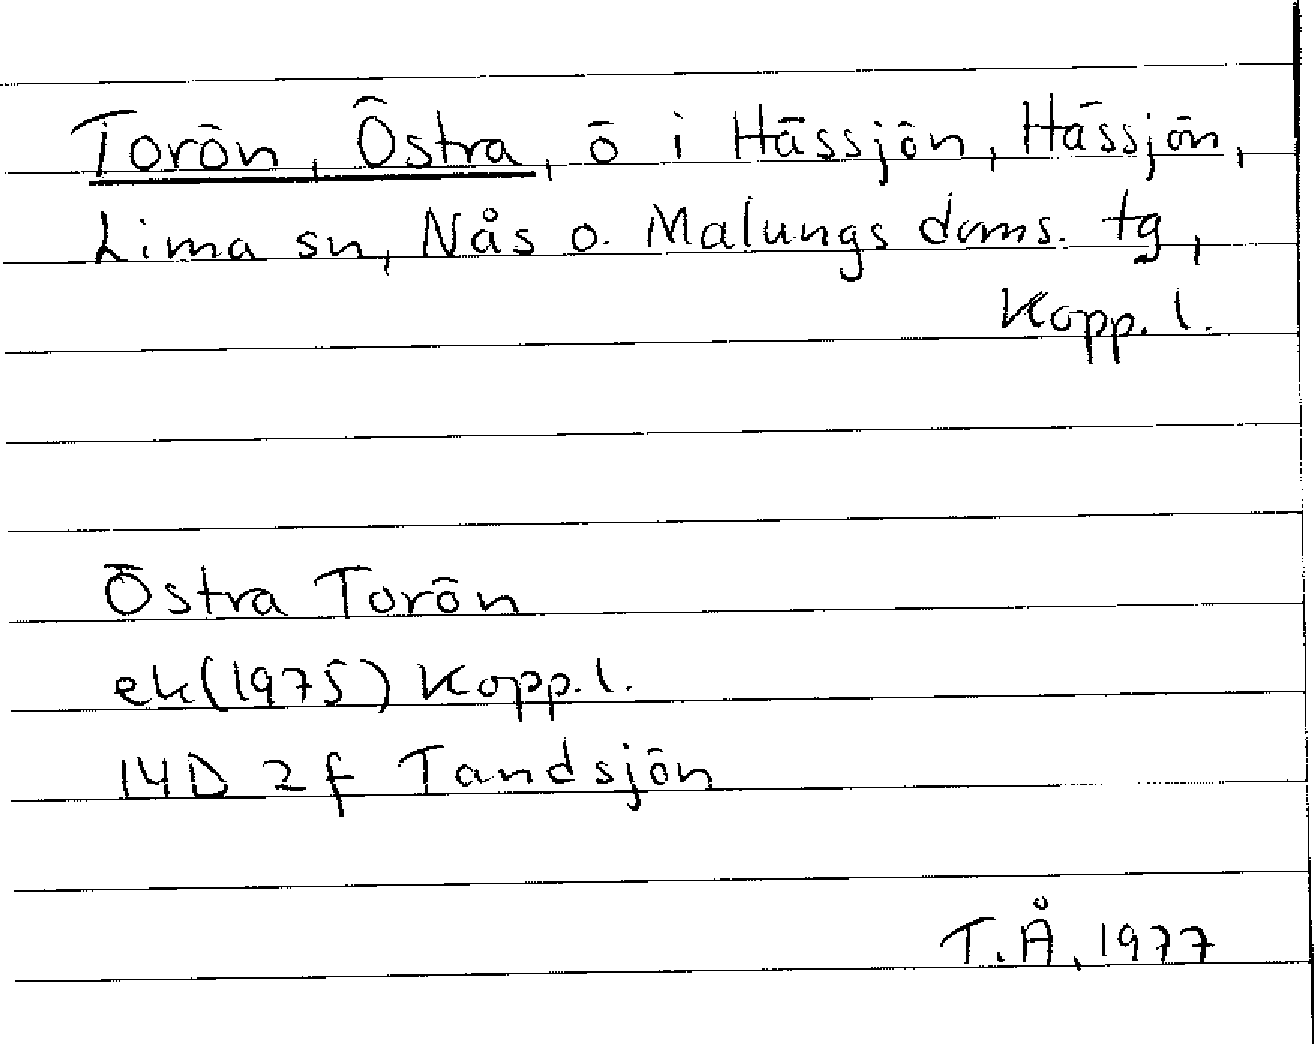 Torön, Östra, ö i Hässjön, Hässjön,
Lima sn, Nås o. Malungs doms. tg,
Kopp. l.
Östra Torön
ek (1975) Kopp. l.
14D 2f Tandsjön
T.Å, 1977